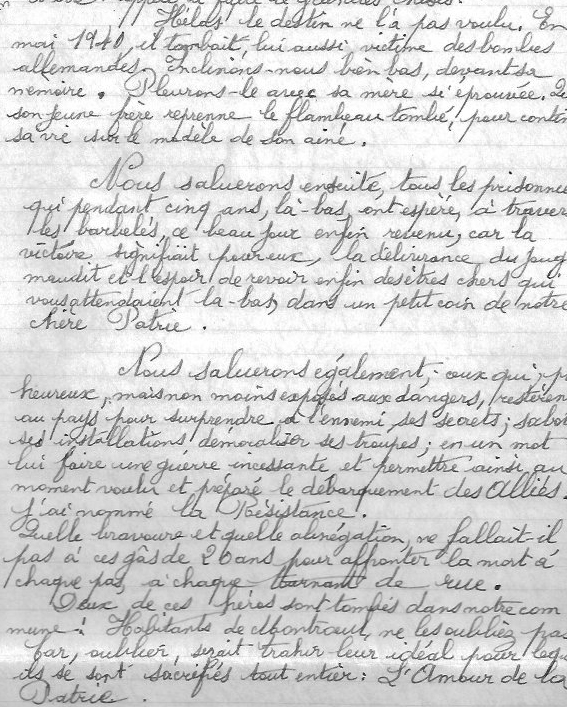 Hélas le destin ne l'a pas voulu. En
mai 1940, il tombait, lui aussi, victime des bombes
allemandes. Inclinons-nous bien bas, devant sa
mémoire. Pleurons-le avec sa mère si éprouvée.
son jeune frère reprenne le flambeau tombé, pour contin
sa vie sur le modèle de son ainé.
Nous saluerons ensuite, tous les prisonnie
qui pendant cinq ans, là-bas, ont espéré, à traver
les barbelés, ce beau jour enfin revenu, car la
victoire signifiait pour eux, la délivrance du joug
maudit et l'espoir de revoir enfin des êtres chers qui
vous attendaient là-bas, dans un petit coin de notre
chère Patrie.
Nous saluerons également, ceux qui, p
heureux, mais non moins exposés aux dangers, restèren
au pays pour surprendre à l'ennemi, ses secrets; sabot
ses installations démoraliser ses troupes; en un mot
lui faire une guerre incessante et permettre ainsi, au
moment voulu et préparé le débarquement des Alliés.
J'ai nommé la Résistance.
Quelle bravoure et quelle abnégation, ne fallait-il
pas à ces gâs de 20 ans, pour affronter la mort à
chaque pas, à chaque tournant de rue.
Deux de ces héros sont tombés dans notre com
mune! Habitants de Montroeul, ne les oubliez pas
Car, oublier, serait trahir leur idéal pour lequ
ils se sont sacrifiés tout entier: L'Amour de la
Patrie.